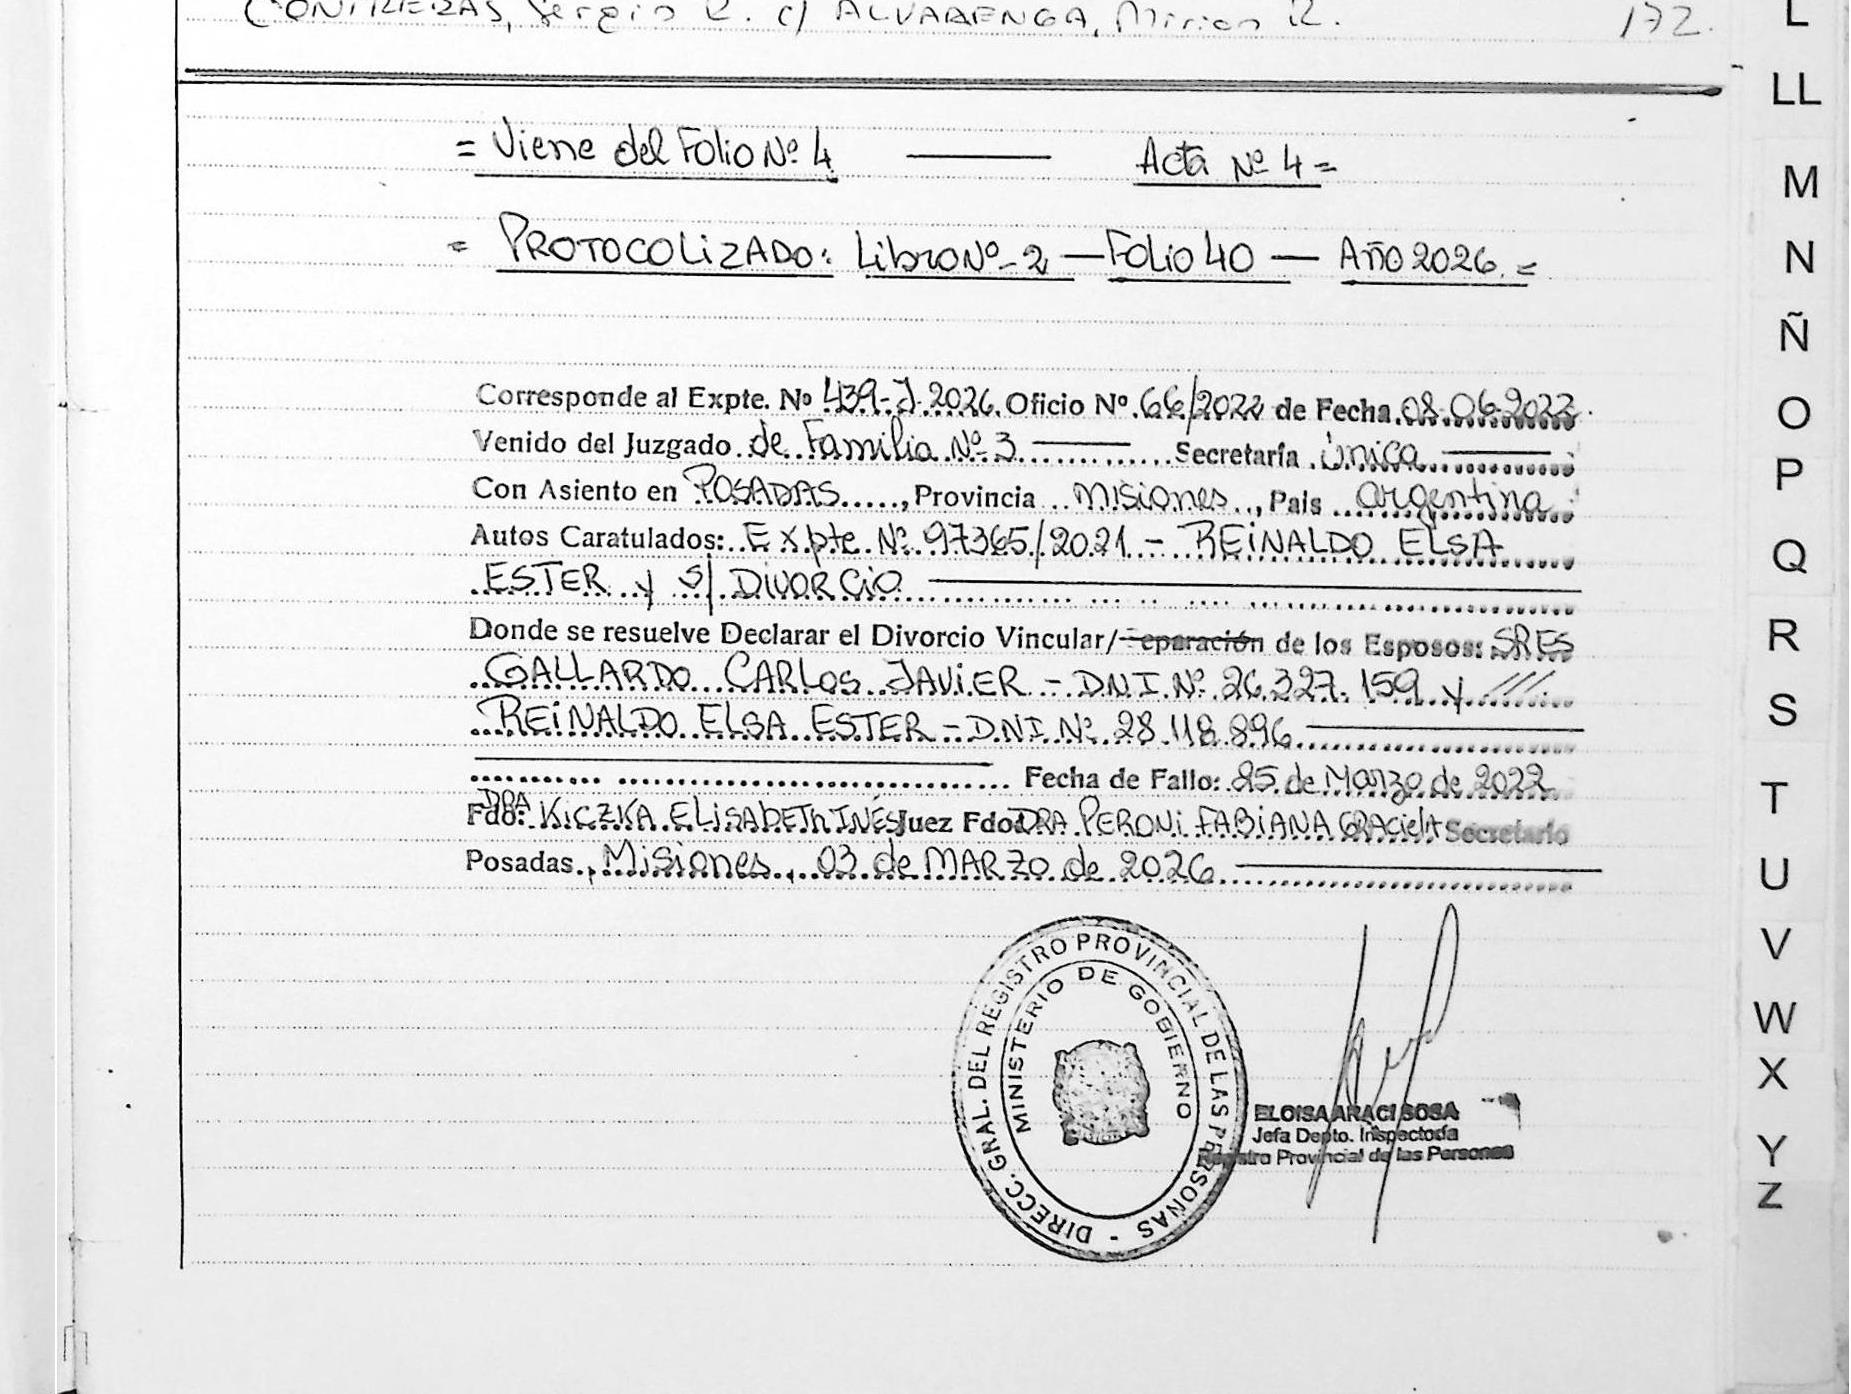 CONTRERAS, Sergio R. c/ ALVARENGA, Mirian R. 172.
= Viene del Folio Nº 4 — Acta Nº 4 =
= PROTOCOLIZADO: Libro Nº 2 — Folio 40 — Año 2026. =
Corresponde al Expte. Nº 439-J-2026. Oficio Nº 66/2022 de Fecha 08-06-2022.
Venido del Juzgado de Familia Nº 3 — Secretaría Única —
Con Asiento en POSADAS, Provincia Misiones, País argentina
Autos Caratulados: Expte. Nº 97365/2021 - REINALDO ELSA
ESTER y s/ DIVORCIO —
Donde se resuelve Declarar el Divorcio Vincular/Separación de los Esposos: SRES
GALLARDO CARLOS JAVIER - DNI. Nº 26.327.159 y ///.
REINALDO ELSA ESTER - DNI. Nº 28.118.896 —
— Fecha de Fallo: 25 de Marzo de 2022
Fdo: DRA KICZKA ELISABETH INÉS Juez Fdo: DRA PERONI FABIANA GRACIELA Secretario
Posadas, Misiones, 03 de MARZO de 2026 —
DIRECC. GRAL. DEL REGISTRO PROVINCIAL DE LAS PERSONAS -
MINISTERIO DE GOBIERNO
ELOISA ARACI SOSA
Jefa Depto. Inspectoria
Registro Provincial de las Personas
L
LL
M
N
Ñ
O
P
Q
R
S
T
U
V
W
X
Y
Z